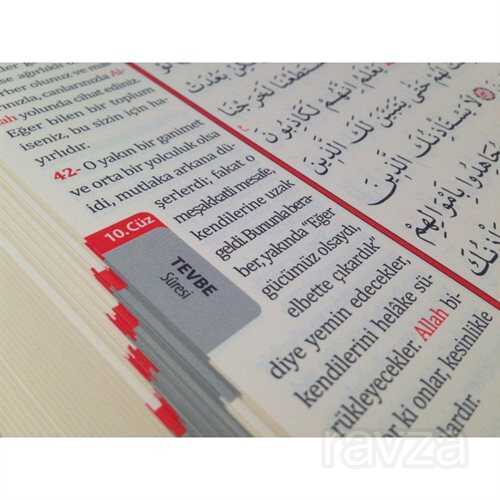 ağırlıklı
erber olunuz ve mal-
rınızla, canlarınızla Al-
lah yolunda cihat ediniz.
Eğer bilen bir toplum
iseniz, bu sizin için ha-
yırlıdır.
42- O yakın bir ganimet
ve orta bir yolculuk olsa
idi, mutlaka arkana dü-
şerlerdi; fakat o
meşakkatli mesafe,
kendilerine uzak
geldi. Bununla bera-
ber, yakında "Eğer
gücümüz olsaydı,
elbette çıkardık"
diye yemin edecekler,
kendilerini helâke sü-
rükleyecekler. Allah bi-
or ki onlar, kesinlikle
lardır.
10. Cüz
TEVBE
Sûresi
لَخَرَجْنَا
يَعْلَمُ إِنَّهُمْ لَكَاذِبُونَ
حَتَّى يَتَبَيَّنَ لَكَ الَّذِينَ
لَا يَسْتَأْذِنُكَ الَّذِينَ
بِأَمْوَالِهِمْ
ravza